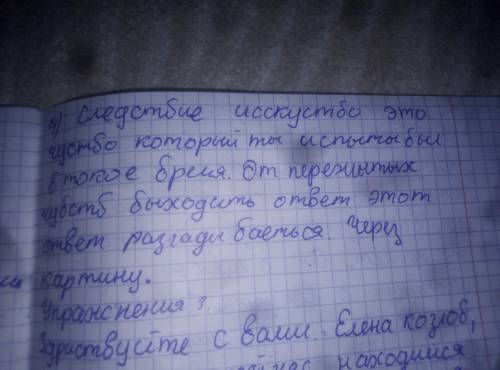 4) Следствие исскуство это
чуство который ты испытывал
в токое время. От пережытых
чувств выходить ответ этот
ответ разгадываеться. Через
картину.
Упражнения 3.
Здраствуйте с вами. Елена козлов,
находимся